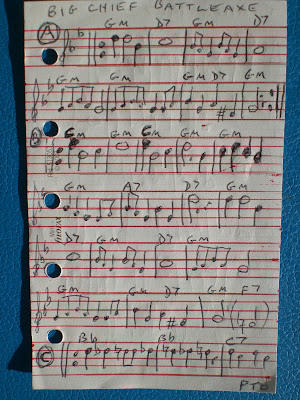 BIG CHIEF BATTLEAXE
A Gm D7 Gm D7
Gm Gm Gm D7 Gm
B Cm Gm Cm Gm Gm
Gm A7 D7 Gm
D7 Gm D7 Gm
Gm Gm D7 Gm F7
C Bb Bb C7
PTO